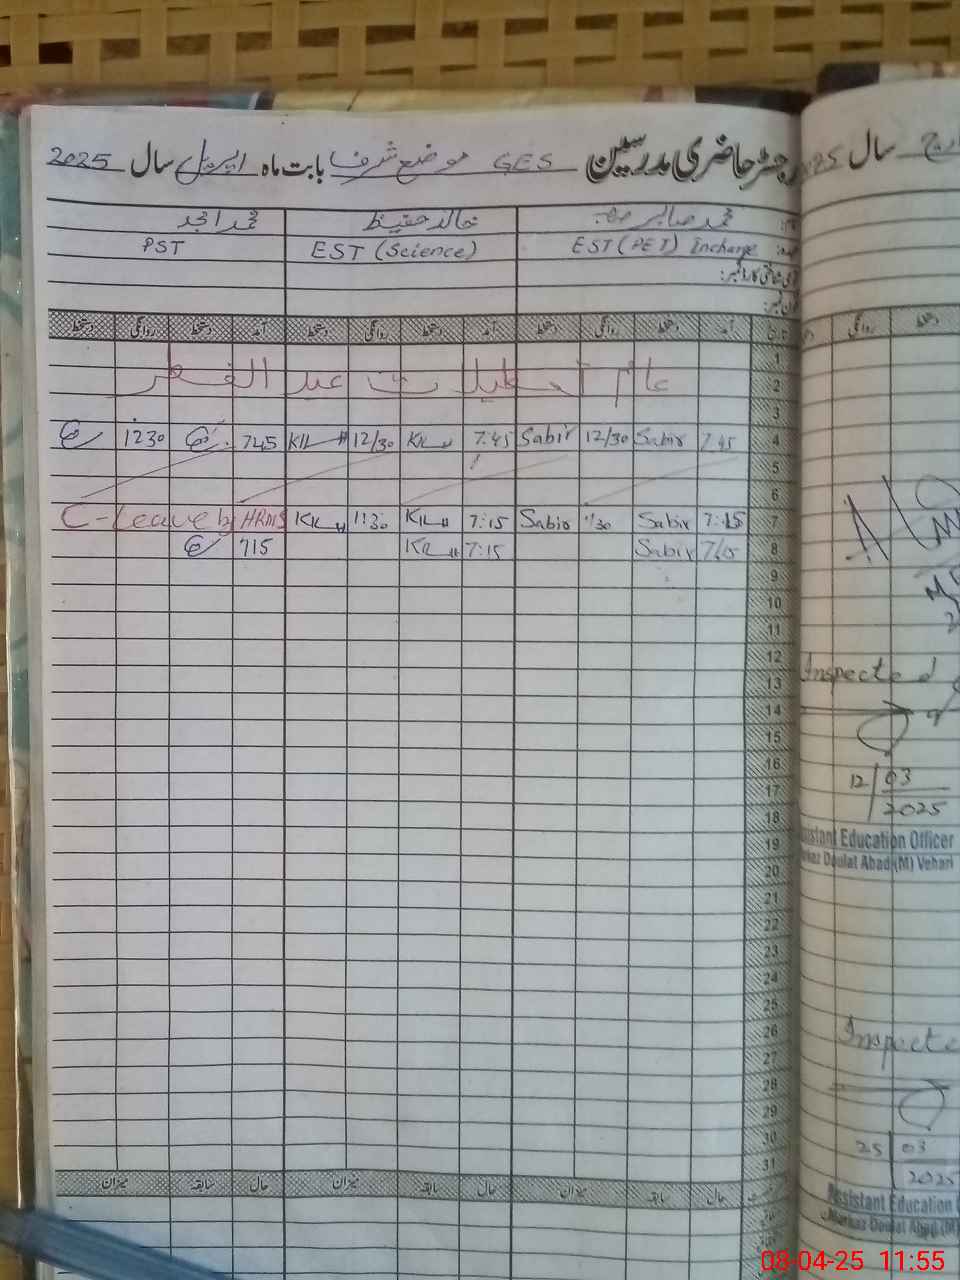 رجسٹر حاضری مدرسین GES موضع شرف بابت ماہ اپریل سال 2025
محمد صابر خالد حفیظ محمد امجد
EST (PET) Incharge EST (Science) PST
آمد دستخط روانگی دستخط آمد دستخط روانگی دستخط آمد دستخط روانگی دستخط
1
2 عام تعطیلات عید الفطر
3
4 7.45 Sabir 12/30 Sabir 7.45 12/30 745 1230
5
6
7 7:15 Sabir 1/30 Sabir 7:15 1:30 C-Leave by HRMS
8 7/15 Sabir 7:15 715
9
10
11
12
13
14
15
16
17
18
19
20
21
22
23
24
25
26
27
28
29
30
31
حال سابقہ میزان حال سابقہ میزان حال سابقہ میزان
سال
روانگی دستخط
Inspected
12/03
2025
Assistant Education Officer
Markaz Doulat Abad (M) Vehari
Inspecte
25 03
2025
Assistant Education
Markaz Doulat Abad (M)
08-04-25 11:55